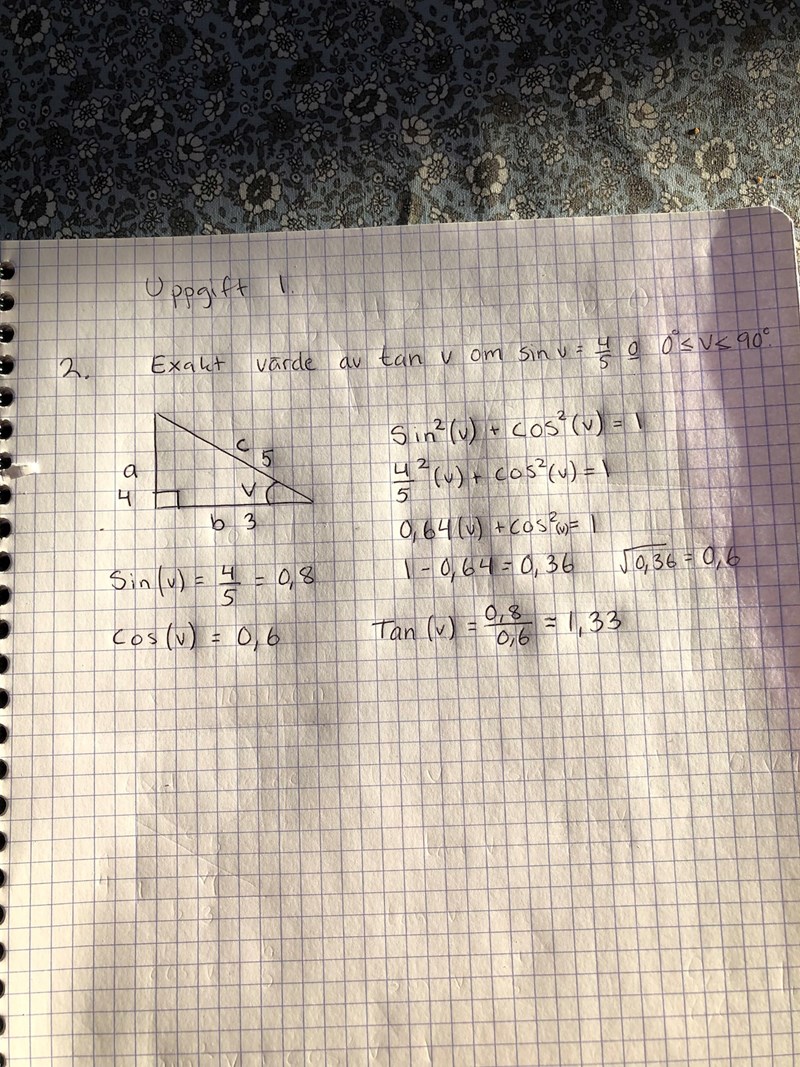 Uppgift 1.
2. Exakt värde av tan v om sin v = 4/5 o 0° ≤ v ≤ 90°.
a
4
c 5
v
b 3
Sin²(v) + cos²(v) = 1
4/5 ²(v) + cos²(v) = 1
0,64(v) + cos²(v) = 1
1 - 0,64 = 0,36 √0,36 = 0,6
Sin(v) = 4/5 = 0,8
Cos(v) = 0,6
Tan(v) = 0,8/0,6 ≈ 1,33